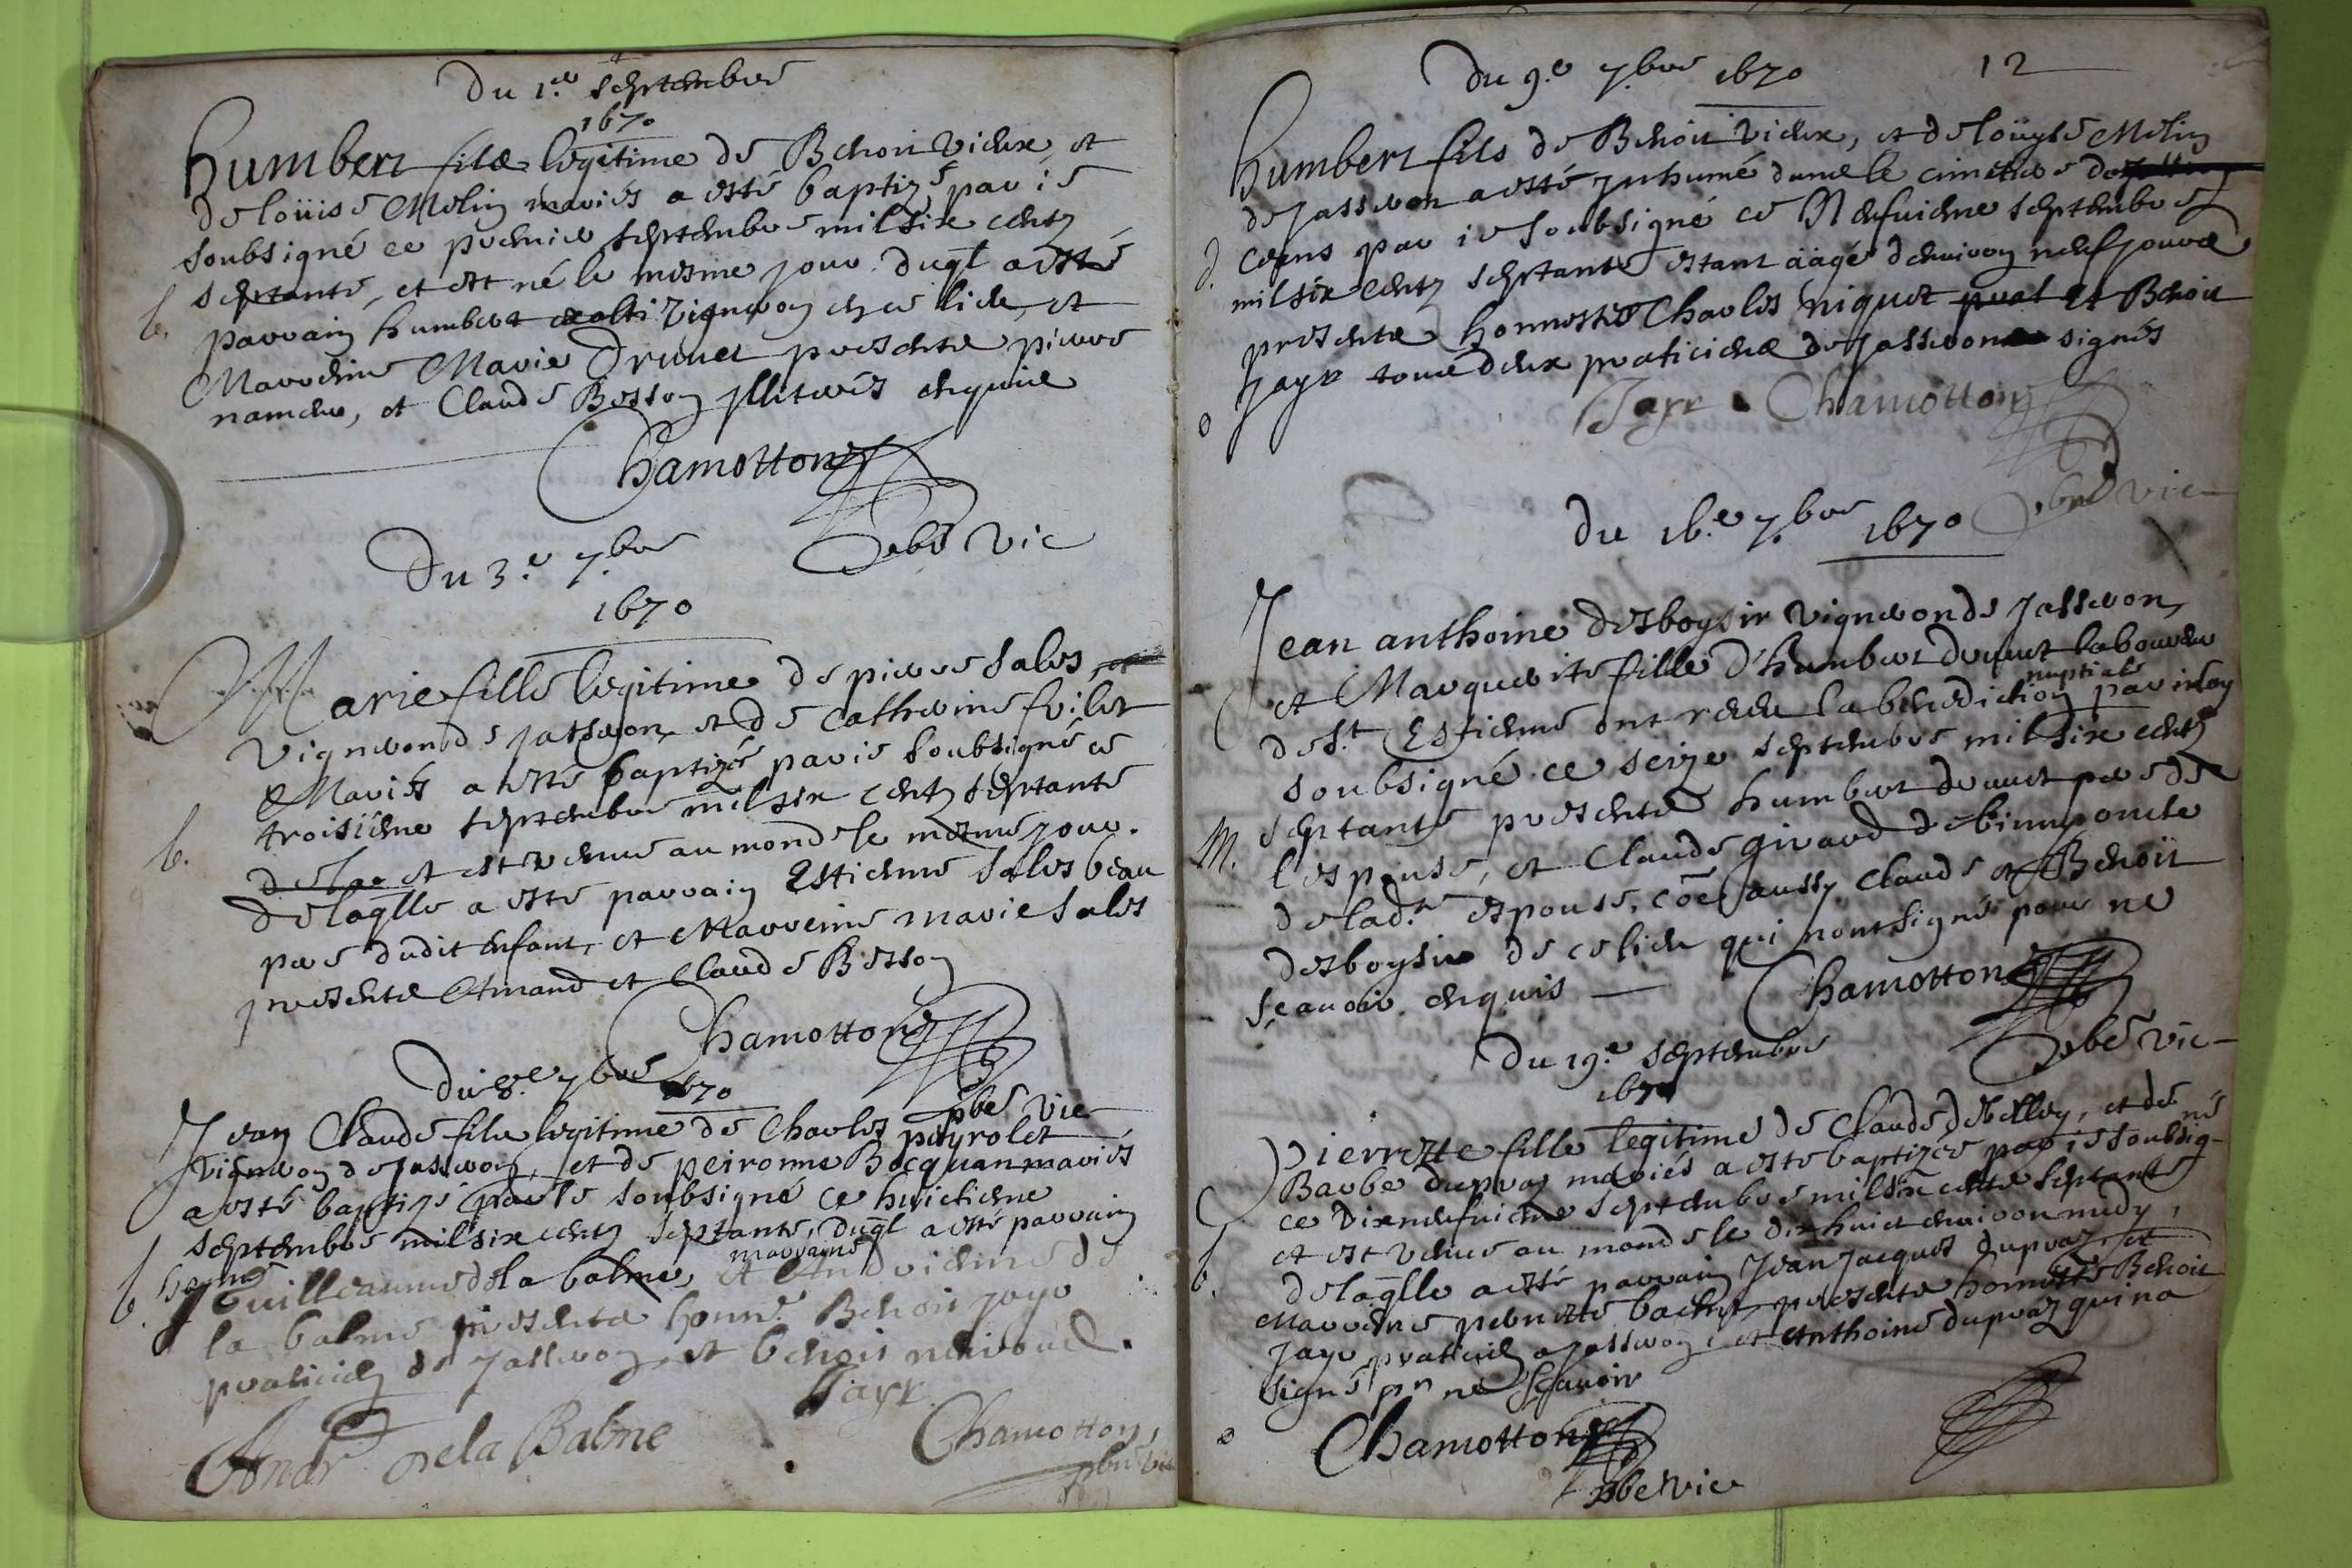 Du 1.er septembre
1670
Humbert filz legitime de Benoit Vieux, et
de loüise Molin mariés a esté baptizé par ie
soubsigné ce premier septembre mil six centz
septante, et est né le mesme jour. duql a esté
b.
parrain humbert vigneron en ce lieu, et
Marrenne Marie Druuet presentz pierre
et Claude Besson illiterés enquis
Chamotton
pbr vic
Du 3.e 7.bre
1670
Marie fille legitime de pierre Sales,
vigneron de Jasseron, et de Catherine
Mariés a esté baptizée par ie soubsigné ce
troisiéme septembre mil six centz septante
b.
et est venue au monde le mesme jour.
de laqlle a esté parrain Estienne Sales beau
pere dudit enfant, et Marreine marie Sales
presentz Amand et Claude Besson
Chamotton
pbr vic
Du 8.e 7bre
1670
Jean Claude filz legitime de Charles peyrolet
vigneron de Jasseron, et de peironne Bocquan mariés
a esté baptizé par le soubsigné ce huictiéme
septembre mil six centz septante, duql a esté parrain
b
Guilleaume de la balme, et marraine Andrienne de
la balme presentz honn.e Benoit Jayr
praticien de Jasseron, et benoit
Jayr
Andr dela Balme
Chamotton,
pbr vic
12
Du 9.e 7.bre 1670
Humbert fils de Benoit Vieux, et de loüyse Molin
de Jasseron a esté inhumé dans le cimetiere
ceans par ie soubsigné ce Neufuieme septembre
d.
mil six centz septante estant ââgé d'enuiron neuf jours
presentz honnestes Charles niquet et Benoit
Jayr tous deux praticiens de Jasseron signés
Jayr Chamotton
pbr vic
Du 16.e 7.bre 1670
Jean anthoine desboysir vigneron de Jasseron,
et Marguerite fille d'humbert Druuet laboureur
de S.t Estienne ont receu la benediction nuptiale par moy
soubsigné ce seize septembre mil six centz
septante presentz humbert druuet pere de
M.
l'espouse, et Claude girard de oncle
de lad.te espouse, cõe aussy Claude et Benoit
desboysir de ce lieu qui n'ont signé pour ne
scauoir enquis
Chamotton
pbr vic
Du 19.e septembre
1670
Pierrette fille legitime de Claude, et de
Barbe dupraz mariés a esté baptizée par ie soubsigné
ce dixneufuieme septembre mil six centz septante
et est venue au monde le dixhuict enuiron midy,
b.
de laqlle a esté parrain Jean Jacques dupraz, et
Marrenne pernette presentz honneste Benoit
Jayr praticien a Jasseron, et Anthoine dupraz qui n'a
signé pr ne scauoir
Chamotton
pbr vic